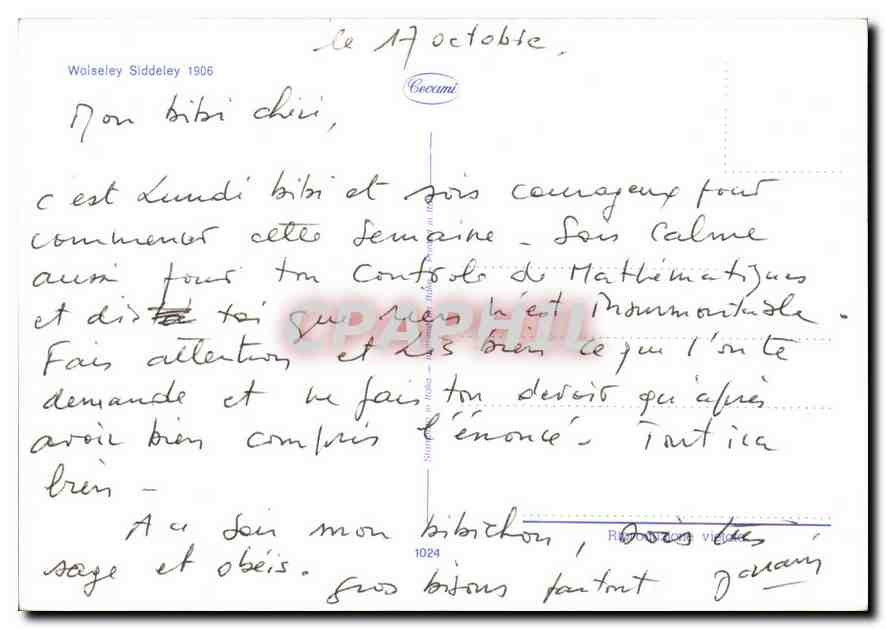 le 17 octobre.
Wolseley Siddeley 1906
Cecami
Mon bibi chéri,
c'est Lundi bibi et sois courageux pour
commencer cette semaine - Sois calme
aussi pour ton Contrôle de Mathématiques
et dis toi que rien n'est insurmontable.
CPAPHIL
Fais attention et Lis bien ce que l'on te
demande et ne fais ton devoir qu'après
avoir bien compris l'énoncé - Tout ira
bien -
A ce soir mon bibichon, sois très
Riproduzione vietata
1024
sage et obéis.
gros bisous partout